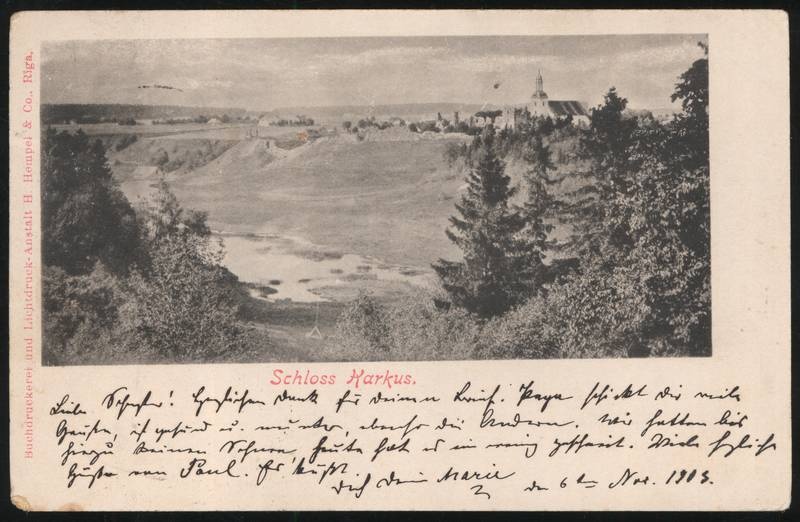 Buchdruckerei und Lichtdruck-Anstalt H. Hempel & Co., Riga.
Schloss Karkus.
Liebe Schwester! Herzlichen Dank für deinen Brief. Papa schickt dir viele
Grüße, ist gesund u. munter, ebenso die Andern. Wir hatten bis
hiezu keinen Schnee, heute hat es ein wenig geschneit. Viele herzliche
Grüße von Paul. Es küßt
Dich Dein Marie
den 6ten Nov. 1903.